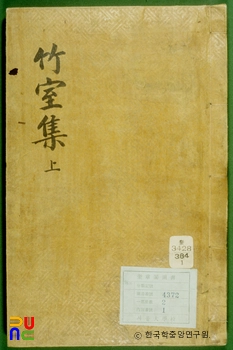 竹室集
上
한
3428
384
1
4372
2
1
© 한국학중앙연구원